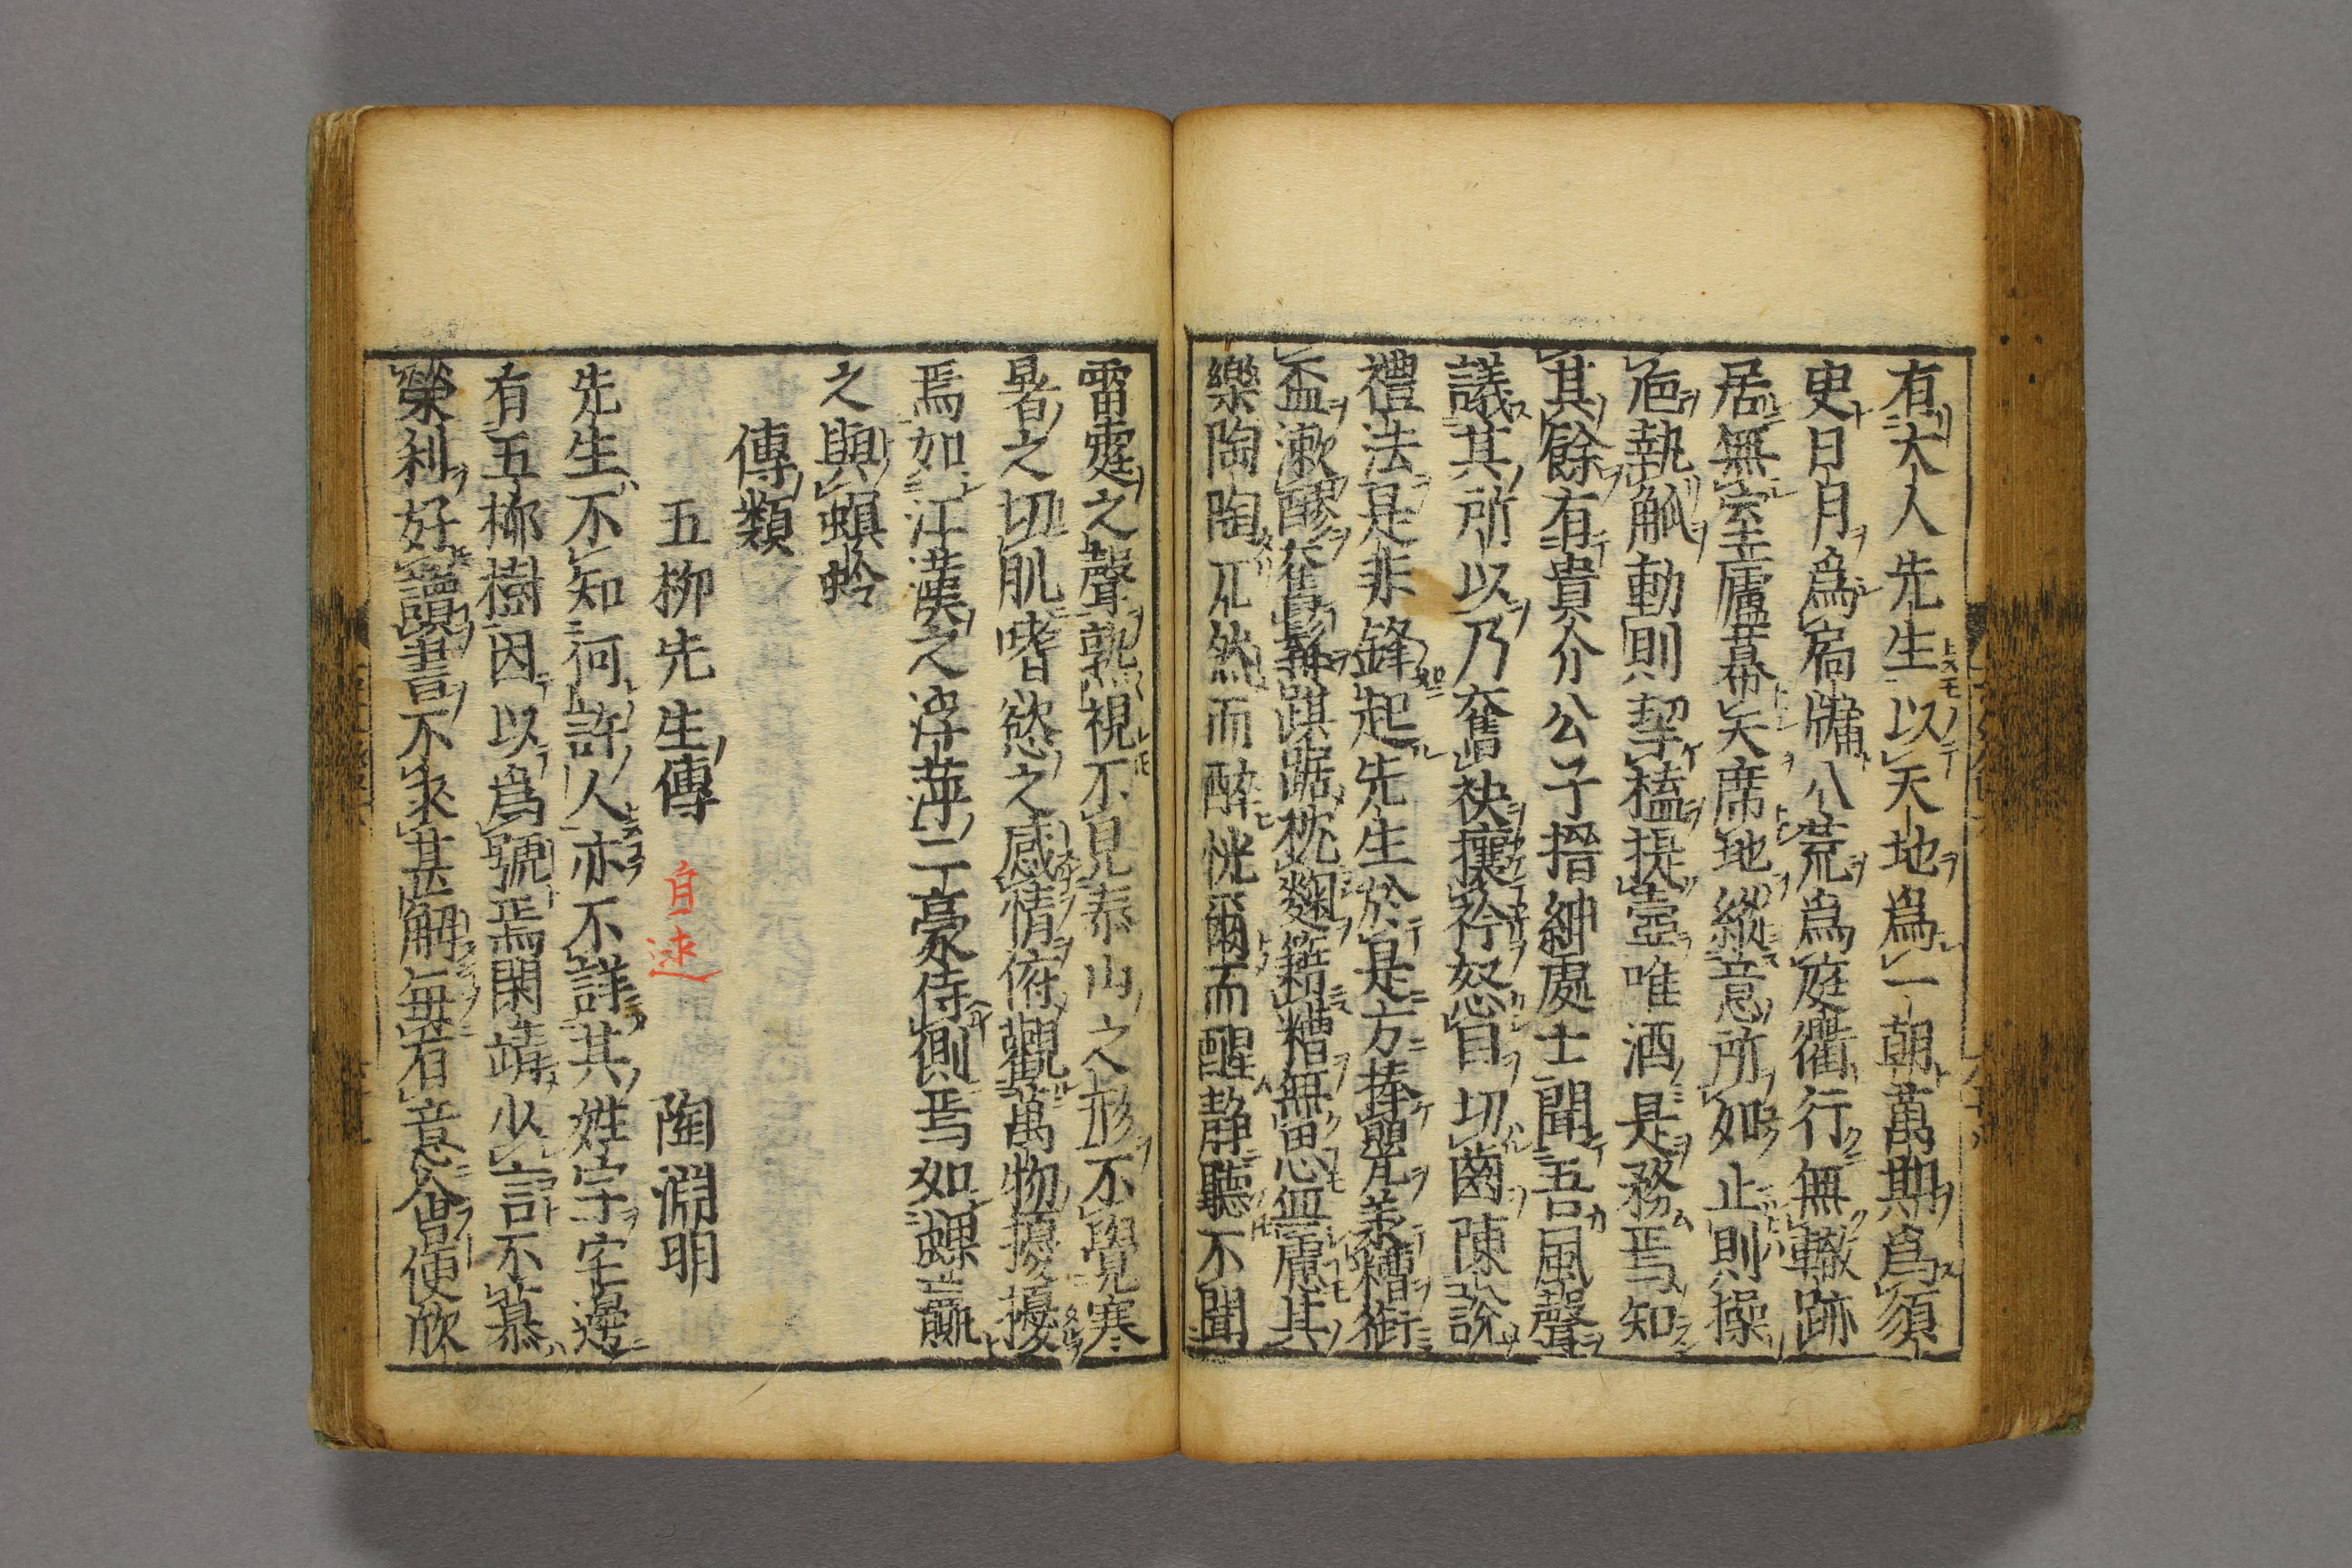 有大人先生以天地爲一朝萬期爲須
史日月爲扃牖八荒爲庭衢行無轍跡
居無室廬幕天席地縱意所如止則操
巵執觚動則挈榼提壺唯酒是務焉知
其餘有貴介公子搢紳處士聞吾風聲
議其所以乃奮袂攘衿怒目切齒陳說
禮法是非鋒起先生於是方捧甖承糟銜
盃漱醪奮髯踑踞枕麴籍糟無思無慮其
樂陶陶兀然而醉恍爾而醒静聽不聞
雷霆之聲熟視不見泰山之形不覺寒
暑之切肌嗜慾之感情俯觀萬物擾擾
焉如江漢之浮萍二豪侍側焉如蜾蠃
之與螟蛉
傳類
五柳先生傳 自述 陶淵明
先生不知何許人亦不詳其姓字宅邊
有五柳樹因以爲號焉閑靖少言不慕
榮利好讀書不求甚解每有意會便欣